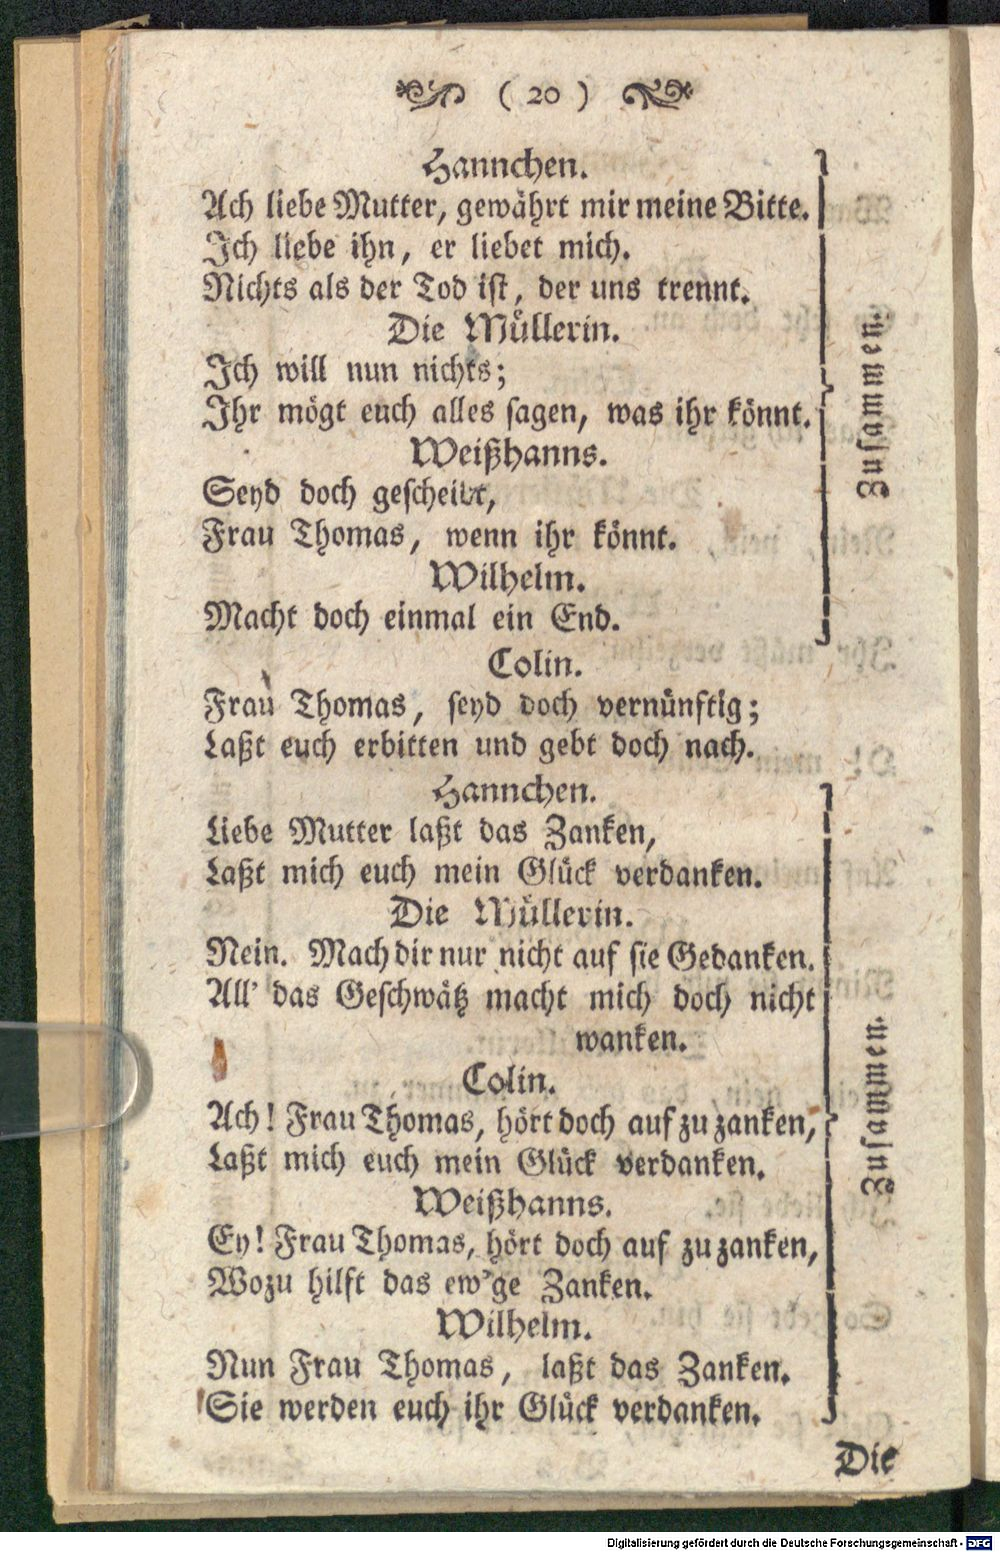 ( 20 )
Hannchen.
Ach liebe Mutter, gewährt mir meine Bitte.
Ich liebe ihn, er liebet mich.
Nichts als der Tod ist, der uns trennt.
Die Müllerin.
Ich will nun nichts;
Ihr mögt euch alles sagen, was ihr könnt.
Weißhanns.
Seyd doch gescheibt,
Frau Thomas, wenn ihr könnt.
Wilhelm.
Macht doch einmal ein End.
Zusammen.
Colin.
Frau Thomas, seyd doch vernünftig;
Laßt euch erbitten und gebt doch nach.
Hannchen.
Liebe Mutter laßt das Zanken,
Laßt mich euch mein Glück verdanken.
Die Müllerin.
Nein. Mach dir nur nicht auf sie Gedanken.
All' das Geschwätz macht mich doch nicht
wanken.
Colin.
Ach! Frau Thomas, hört doch auf zu zanken,
Laßt mich euch mein Glück verdanken.
Weißhanns.
Ey! Frau Thomas, hört doch auf zu zanken,
Wozu hilft das ew'ge Zanken.
Wilhelm.
Nun Frau Thomas, laßt das Zanken.
Sie werden euch ihr Glück verdanken.
Zusammen.
Die
Digitalisierung gefördert durch die Deutsche Forschungsgemeinschaft - DFG